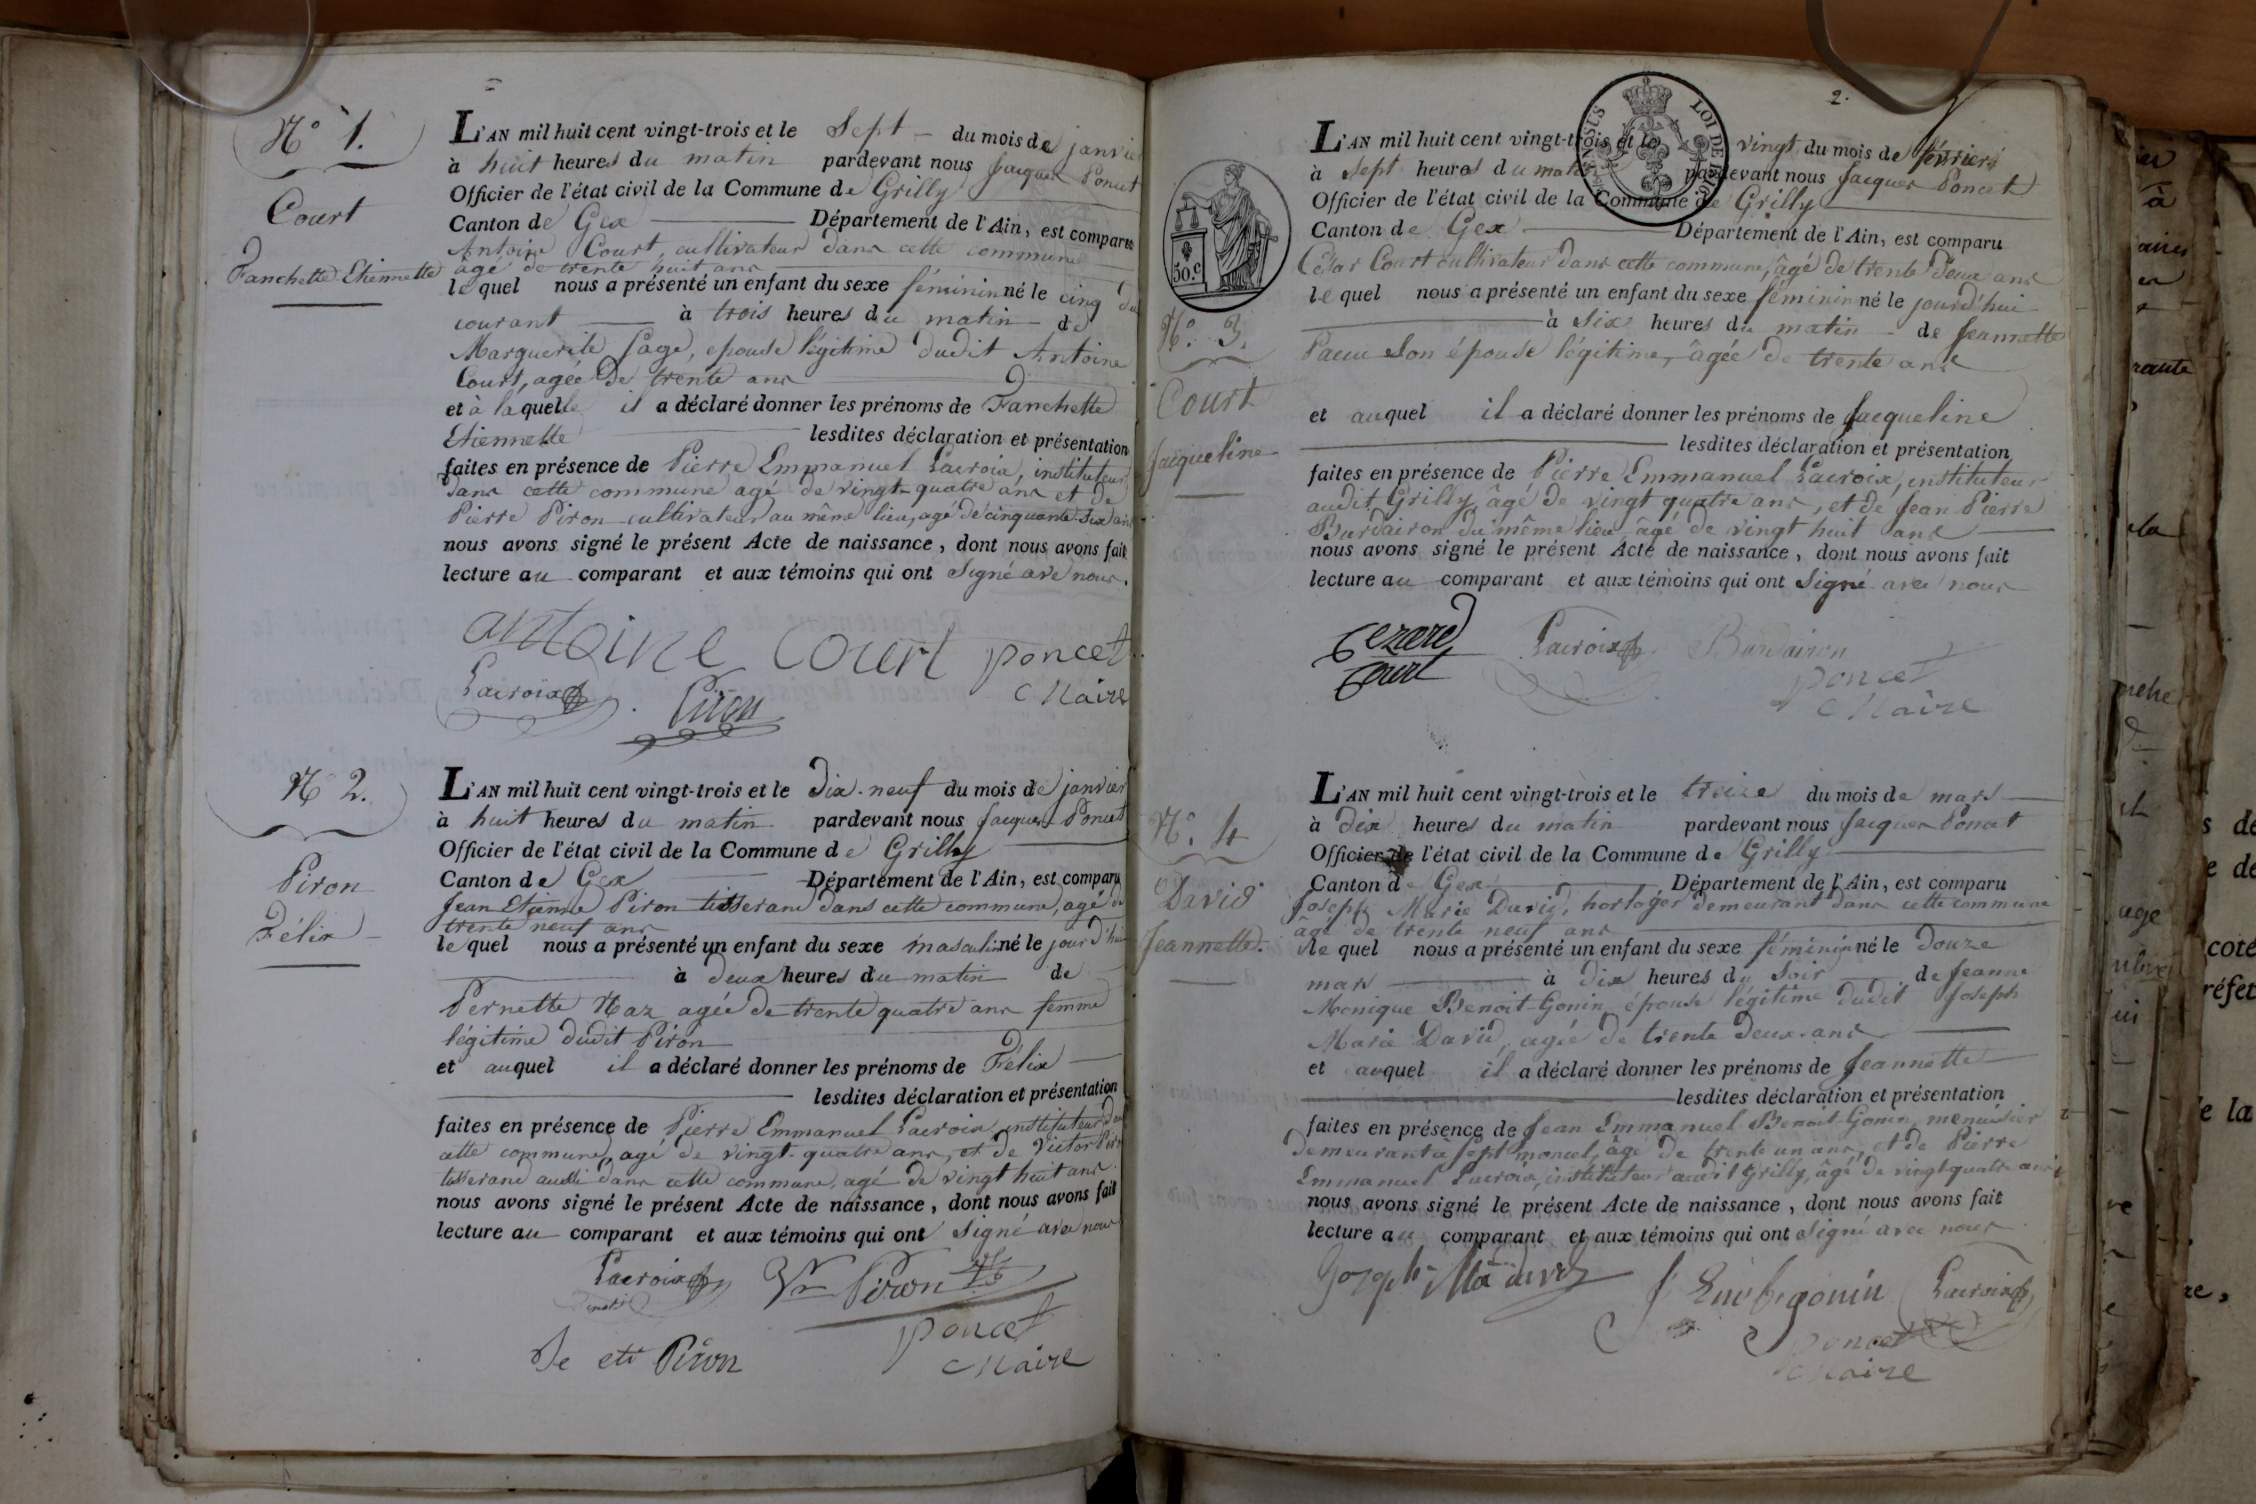 N° 1.
Court
Fanchette Etiennette
L'AN mil huit cent vingt-trois et le sept du mois de janvier
à huit heures du matin pardevant nous Jacques Poncet
Officier de l'état civil de la Commune de Grilly
Canton de Gex Département de l'Ain, est comparu
Antoine Court, cultivateur dans cette commune
agé de trente huit ans
le quel nous a présenté un enfant du sexe féminin né le cinq du
courant à trois heures du matin de
Marguerite Page, epouse légitime dudit Antoine
Court, agée de trente ans
et à laquelle il a déclaré donner les prénoms de Fanchette
Etiennette lesdites déclaration et présentation
faites en présence de Pierre Emmanuel Lacroix, instituteur
dans cette commune agé de vingt-quatre ans et de
Pierre Piron cultivateur au même lieu, agé de cinquante-six ans
nous avons signé le présent Acte de naissance, dont nous avons fait
lecture au comparant et aux témoins qui ont signé avec nous.
antoine court poncet
Lacroix Maire
Piron
N° 2.
Piron
Félix
L'AN mil huit cent vingt-trois et le dix-neuf du mois de janvier
à huit heures du matin pardevant nous Jacques Poncet
Officier de l'état civil de la Commune de Grilly
Canton de Gex Département de l'Ain, est comparu
Jean Etienne Piron tisserand dans cette commune, agé de
trente neuf ans
le quel nous a présenté un enfant du sexe masculin né le jour d'hui
à deux heures du matin de
Pernette Naz agée de trente quatre ans femme
légitime dudit Piron
et auquel il a déclaré donner les prénoms de Félix
lesdites déclaration et présentation
faites en présence de Pierre Emmanuel Lacroix instituteur dans
cette commune, agé de vingt-quatre ans, et de Victor Piron
tisserand aussi dans cette commune, agé de vingt huit ans.
nous avons signé le présent Acte de naissance, dont nous avons fait
lecture au comparant et aux témoins qui ont signé avec nous
Lacroix Vr Piron
poncet
Je eti Piron Maire
2.
LOI DE 1816
50.c
N°. 3.
Court
Jacqueline
L'AN mil huit cent vingt-trois et le vingt du mois de février
à sept heures du matin pardevant nous Jacques Poncet
Officier de l'état civil de la Commune de Grilly
Canton de Gex Département de l'Ain, est comparu
César Court cultivateur dans cette commune, âgé de trente deux ans
le quel nous a présenté un enfant du sexe féminin né le jourd'hui
à six heures du matin de Jeannette
son épouse légitime, âgée de trente ans
et auquel il a déclaré donner les prénoms de Jacqueline
lesdites déclaration et présentation
faites en présence de Pierre Emmanuel Lacroix, instituteur
audit Grilly, âgé de vingt quatre ans, et de Jean Pierre
Burdairon du même lieu âgé de vingt huit ans
nous avons signé le présent Acte de naissance, dont nous avons fait
lecture au comparant et aux témoins qui ont signé avec nous
Cezard Lacroix Burdairon
Court poncet
Maire
N°. 4
David
Jeannette.
L'AN mil huit cent vingt-trois et le treize du mois de mars
à dix heures du matin pardevant nous Jacques Poncet
Officier de l'état civil de la Commune de Grilly
Canton de Gex Département de l'Ain, est comparu
Joseph Marie David, horloger demeurant dans cette commune
âgé de trente neuf ans
le quel nous a présenté un enfant du sexe féminin né le douze
mars à dix heures du soir de Jeanne
Monique Benoit-Gonin épouse légitime dudit Joseph
Marie David, agée de trente deux ans
et auquel il a déclaré donner les prénoms de Jeannette
lesdites déclaration et présentation
faites en présence de Jean Emmanuel Benoit-Gonin, menuisier
demeurant à Septmoncel, âgé de trente un ans, et de Pierre
Emmanuel Lacroix, instituteur audit Grilly, âgé de vingt-quatre ans
nous avons signé le présent Acte de naissance, dont nous avons fait
lecture au comparant et aux témoins qui ont signé avec nous
Joseph Ma david gonin Lacroix
poncet
Maire